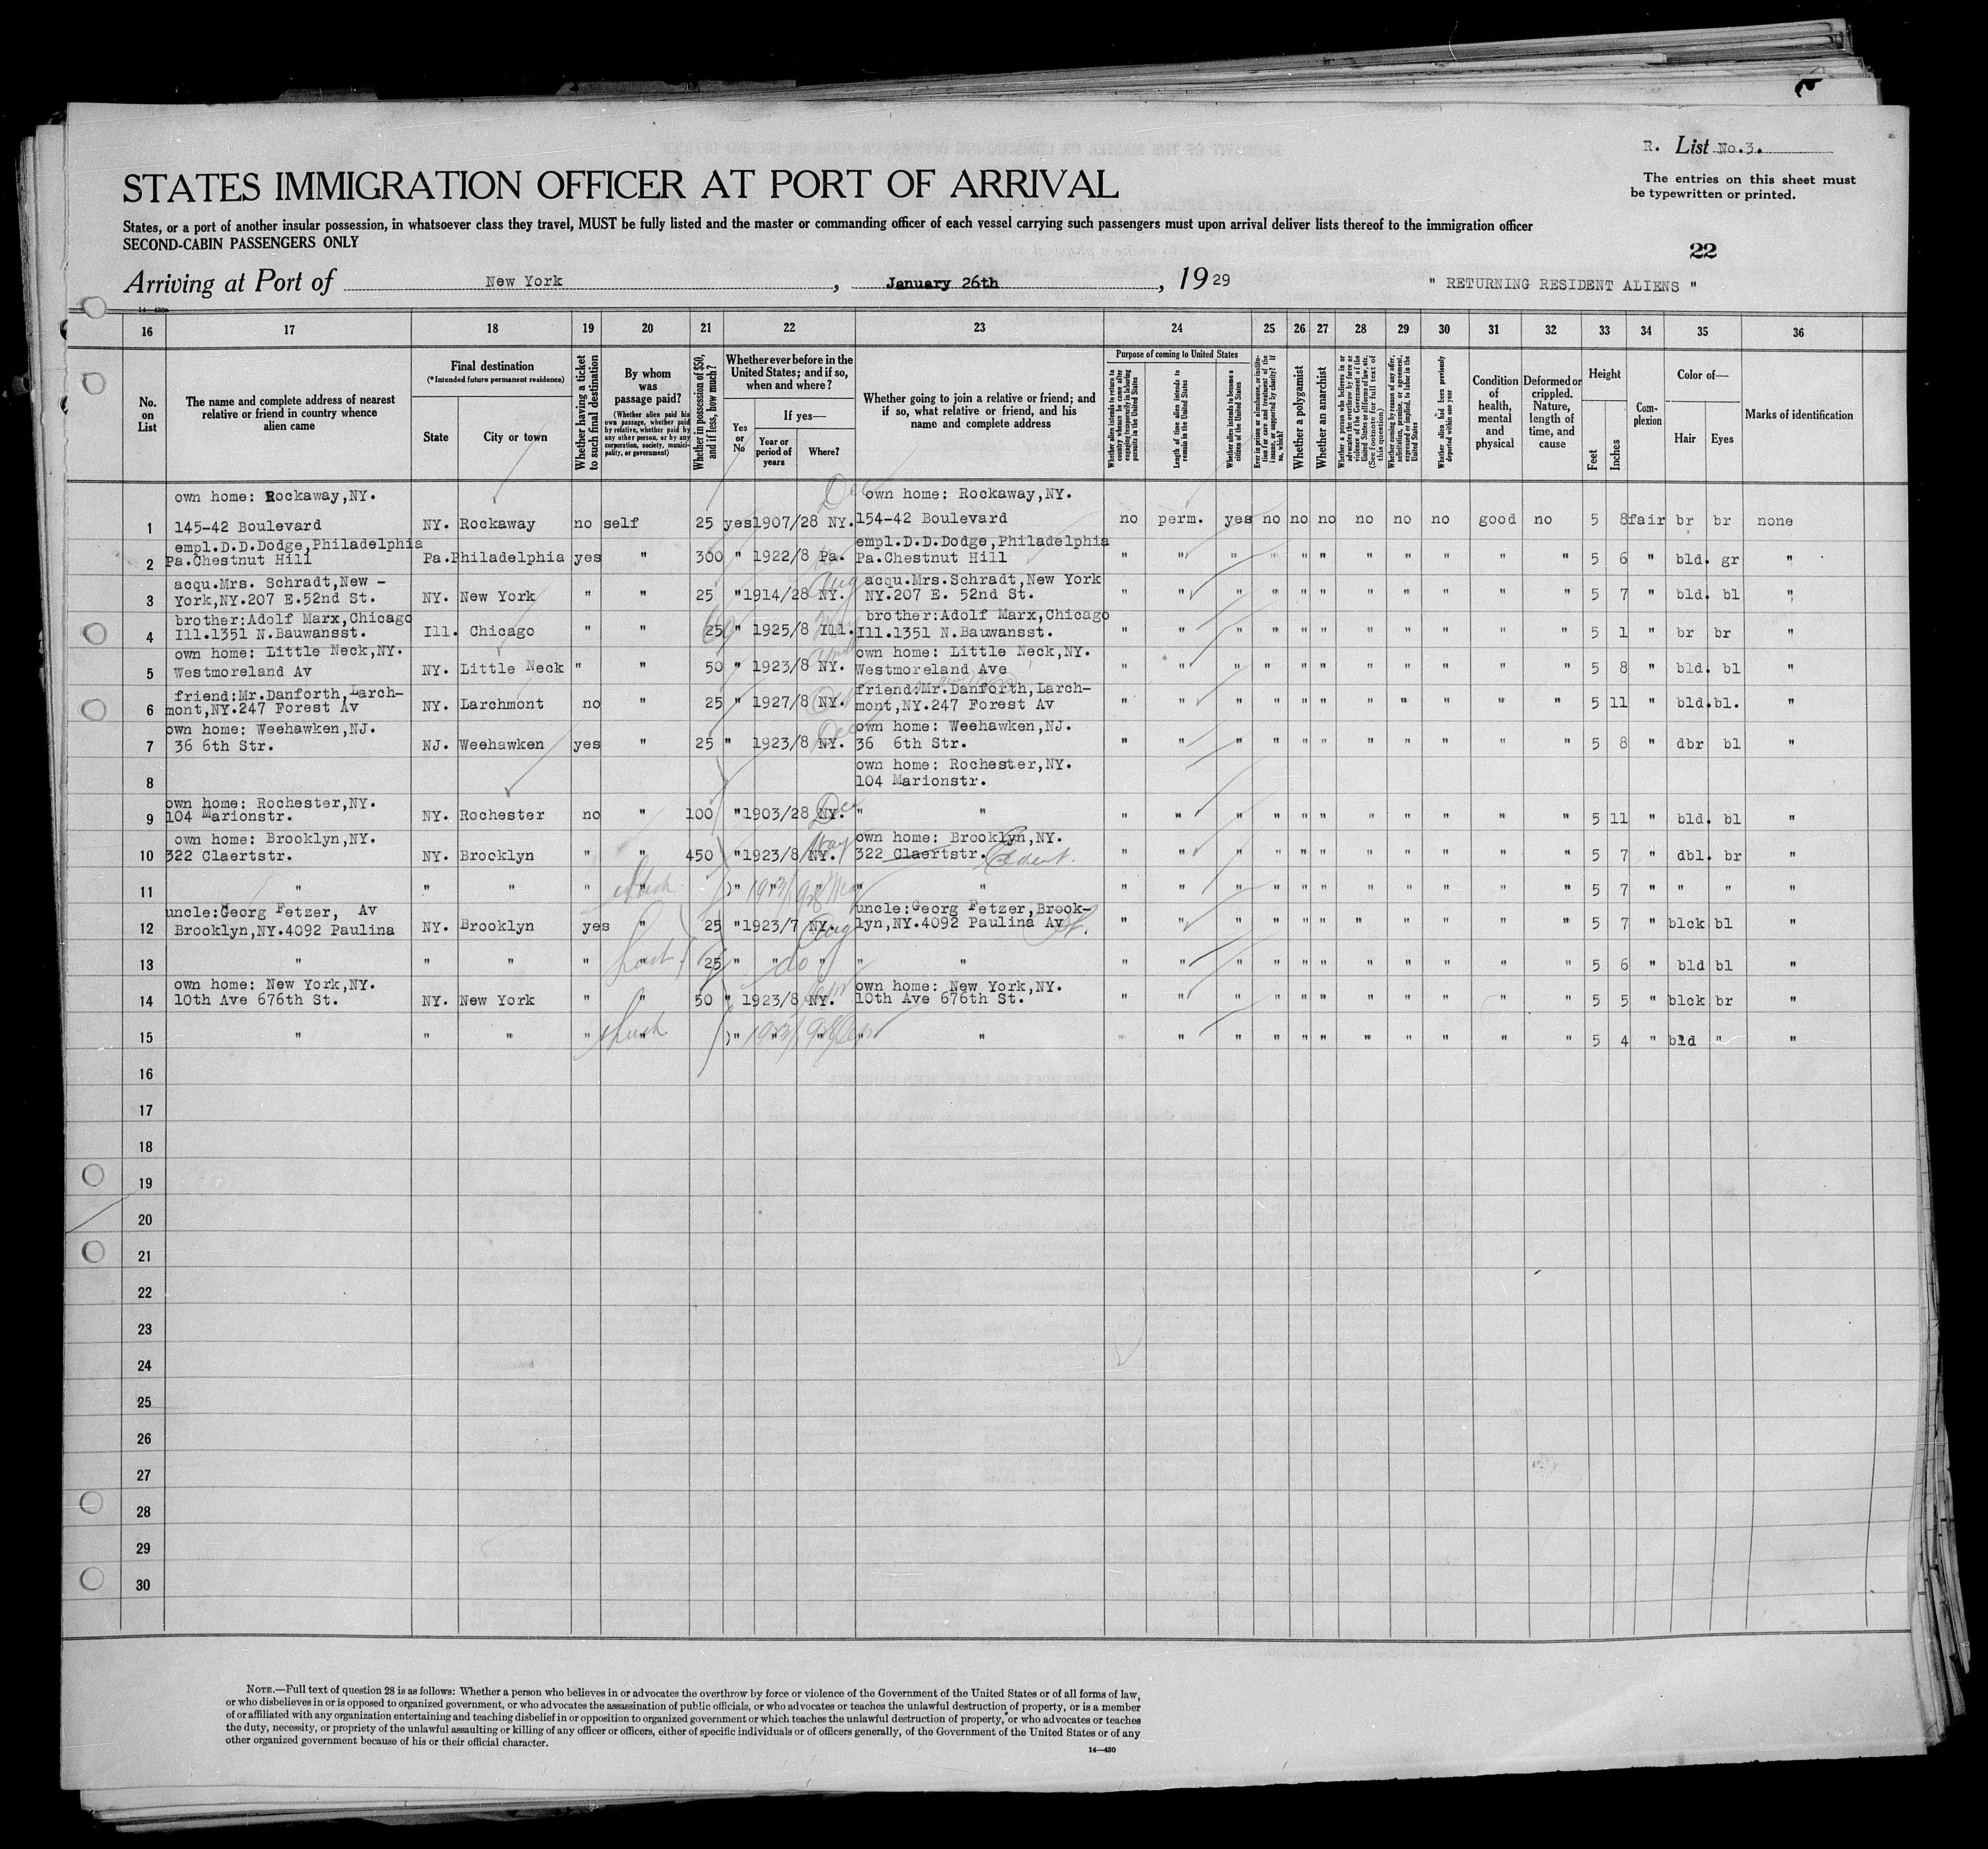 R. List No.3.
The entries on this sheet must
be typewritten or printed.
STATES IMMIGRATION OFFICER AT PORT OF ARRIVAL
States, or a port of another insular possession, in whatsoever class they travel, MUST be fully listed and the master or commanding officer of each vessel carrying such passengers must upon arrival deliver lists thereof to the immigration officer
SECOND-CABIN PASSENGERS ONLY
22
Arriving at Port of New York, January 26th, 1929 " RETURNING RESIDENT ALIENS "
16 17 18 19 20 21 22 23 24 25 26 27 28 29 30 31 32 33 34 35 36
No. on List
The name and complete address of nearest relative or friend in country whence alien came
Final destination
(*Intended future permanent residence)
State
City or town
Whether having a ticket to such final destination
By whom was passage paid?
(Whether alien paid his own passage, whether paid by relative, whether paid by any other person, or by any corporation, society, municipality, or government)
Whether in possession of $50, and if less, how much?
Whether ever before in the United States; and if so, when and where?
Yes or No
If yes—
Year or period of years
Where?
Whether going to join a relative or friend; and if so, what relative or friend, and his name and complete address
Purpose of coming to United States
Whether alien intends to return to country whence he came after engaging temporarily in laboring pursuits in the United States
Length of time alien intends to remain in the United States
Whether alien intends to become a citizen of the United States
Ever in prison or almshouse, or institution for care and treatment of the insane, or supported by charity? If so, which?
Whether a polygamist
Whether an anarchist
Whether a person who believes in or advocates the overthrow by force or violence of the Government of the United States or all forms of law, etc. (See footnote for full text of this question)
Whether coming by reason of any offer, solicitation, promise, or agreement, expressed or implied, to labor in the United States
Whether alien had been previously deported within one year
Condition of health, mental and physical
Deformed or crippled. Nature, length of time, and cause
Height
Feet
Inches
Complexion
Color of—
Hair
Eyes
Marks of identification
own home: Rockaway,NY. Dec own home: Rockaway,NY.
1 145-42 Boulevard NY. Rockaway no self 25 yes 1907/28 NY. 154-42 Boulevard no perm. yes no no no no no no good no 5 8 fair br br none
empl.D.D.Dodge,Philadelphia empl.D.D.Dodge,Philadelphia
2 Pa.Chestnut Hill Pa. Philadelphia yes " 300 " 1922/8 Pa. Pa.Chestnut Hill " " " " " " " " " " " 5 6 " bld. gr "
acqu.Mrs. Schradt,New - Aug acqu.Mrs.Schradt,New York
3 York,NY.207 E.52nd St. NY. New York " " 25 " 1914/28 NY. NY.207 E. 52nd St. " " " " " " " " " " " 5 7 " bld. bl "
brother:Adolf Marx,Chicago brother:Adolf Marx,Chicago
4 Ill.1351 N.Bauwansst. Ill. Chicago " " 25 " 1925/8 Ill. Ill.1351 N.Bauwansst. " " " " " " " " " " " 5 1 " br br "
own home: Little Neck,NY. own home: Little Neck,NY.
5 Westmoreland Av NY. Little Neck " " 50 " 1923/8 NY. Westmoreland Ave " " " " " " " " " " " 5 8 " bld. bl "
friend:Mr.Danforth,Larch- friend:Mr.Danforth,Larch-
6 mont,NY.247 Forest Av NY. Larchmont no " 25 " 1927/8 NY. mont,NY.247 Forest Av " " " " " " " " " " " 5 11 " bld. bl. "
own home: Weehawken,NJ. Dec own home: Weehawken,NJ.
7 36 6th Str. NJ. Weehawken yes " 25 " 1923/8 NY. 36 6th Str. " " " " " " " " " " " 5 8 " dbr bl "
own home: Rochester,NY.
8 104 Marionstr.
own home: Rochester,NY. Dec
9 104 Marionstr. NY. Rochester no " 100 " 1903/28 NY. " " " " " " " " " " " " " 5 11 " bld. bl "
own home: Brooklyn,NY. May own home: Brooklyn,NY.
10 322 Claertstr. NY. Brooklyn " " 450 " 1923/8 NY. 322 Claertstr. " " " " " " " " " " " 5 7 " dbl. br "
11 " " " " " " 1923/928 May " " " " " " " " " " " " " 5 7 " " " "
uncle:Georg Fetzer, Av uncle:Georg Fetzer,Brook-
12 Brooklyn,NY.4092 Paulina NY. Brooklyn yes " 25 " 1923/7 NY. Aug lyn,NY.4092 Paulina Av St. " " " " " " " " " " " 5 7 " blck bl "
13 " " " " 25 " " do " " " " " " " " " " " " " " " 5 6 " bld bl "
own home: New York,NY. own home: New York,NY.
14 10th Ave 676th St. NY. New York " " 50 " 1923/8 NY. 10th Ave 676th St. " " " " " " " " " " " 5 5 " blck br "
15 " " " " " " 1923/928 " " " " " " " " " " " " " 5 4 " bld " "
16
17
18
19
20
21
22
23
24
25
26
27
28
29
30
NOTE.—Full text of question 28 is as follows: Whether a person who believes in or advocates the overthrow by force or violence of the Government of the United States or of all forms of law,
or who disbelieves in or is opposed to organized government, or who advocates the assassination of public officials, or who advocates or teaches the unlawful destruction of property, or is a member
of or affiliated with any organization entertaining and teaching disbelief in or opposition to organized government or which teaches the unlawful destruction of property, or who advocates or teaches
the duty, necessity, or propriety of the unlawful assaulting or killing of any officer or officers, either of specific individuals or of officers generally, of the Government of the United States or of any
other organized government because of his or their official character.
14—430